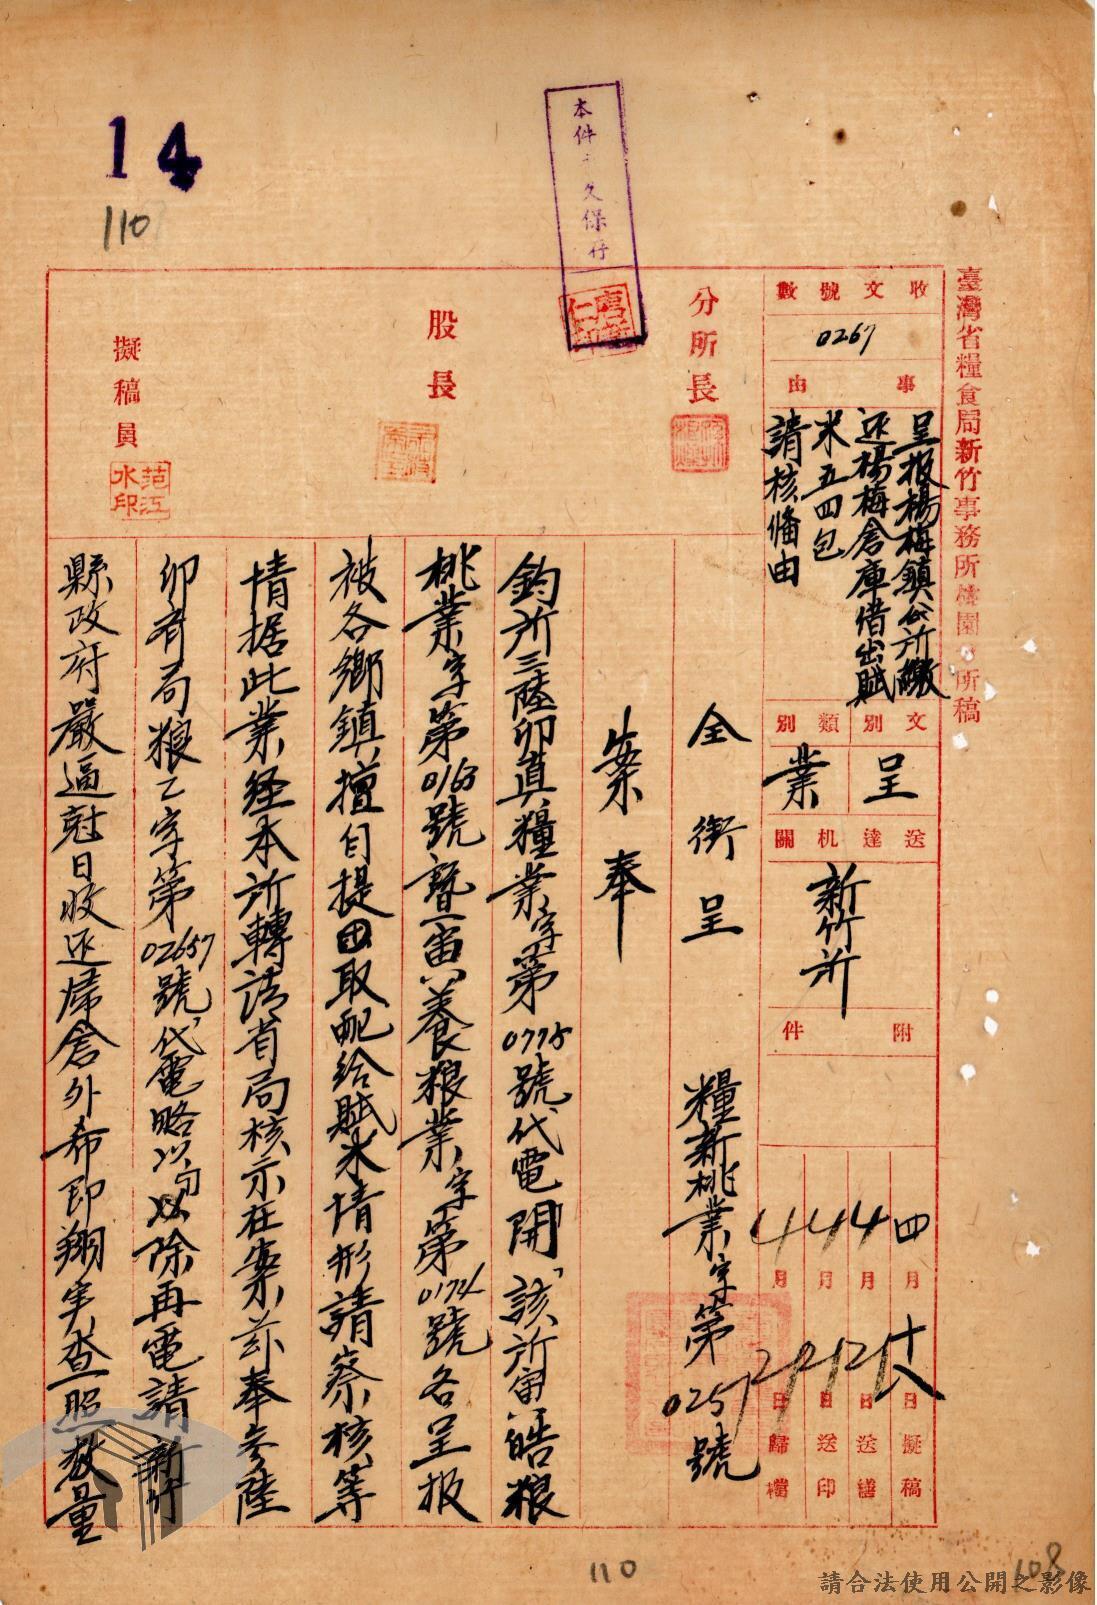 臺灣省糧食局新竹事務所桃園分所稿
收文號數
0267
事由
呈报楊梅鎮公所繳
还楊梅倉庫借出賦
米五四包
請核備由
文別
呈
類別
業
送達机關
新竹所
附件
四月十八日擬稿
4月21日送繕
4月21日送印
4月22日歸檔
分所長
股長
擬稿員
范江水印
本件永久保存
全銜呈 糧新桃業字第0257號
案奉
鈞所三陸卯真糧業字第0775號代電開「該所寅皓粮
桃業字第0163號暨寅養粮業字第0174號各呈报
被各鄉鎮擅自提取配給賦米情形請察核等
情据此業経本所轉請省局核示在案茲奉參陸
卯有局粮乙字第02657號代電略以除再電請新竹
縣政府嚴逼尅日收还歸倉外希即翔实查照数量
14
110
110
108
請合法使用公開之影像